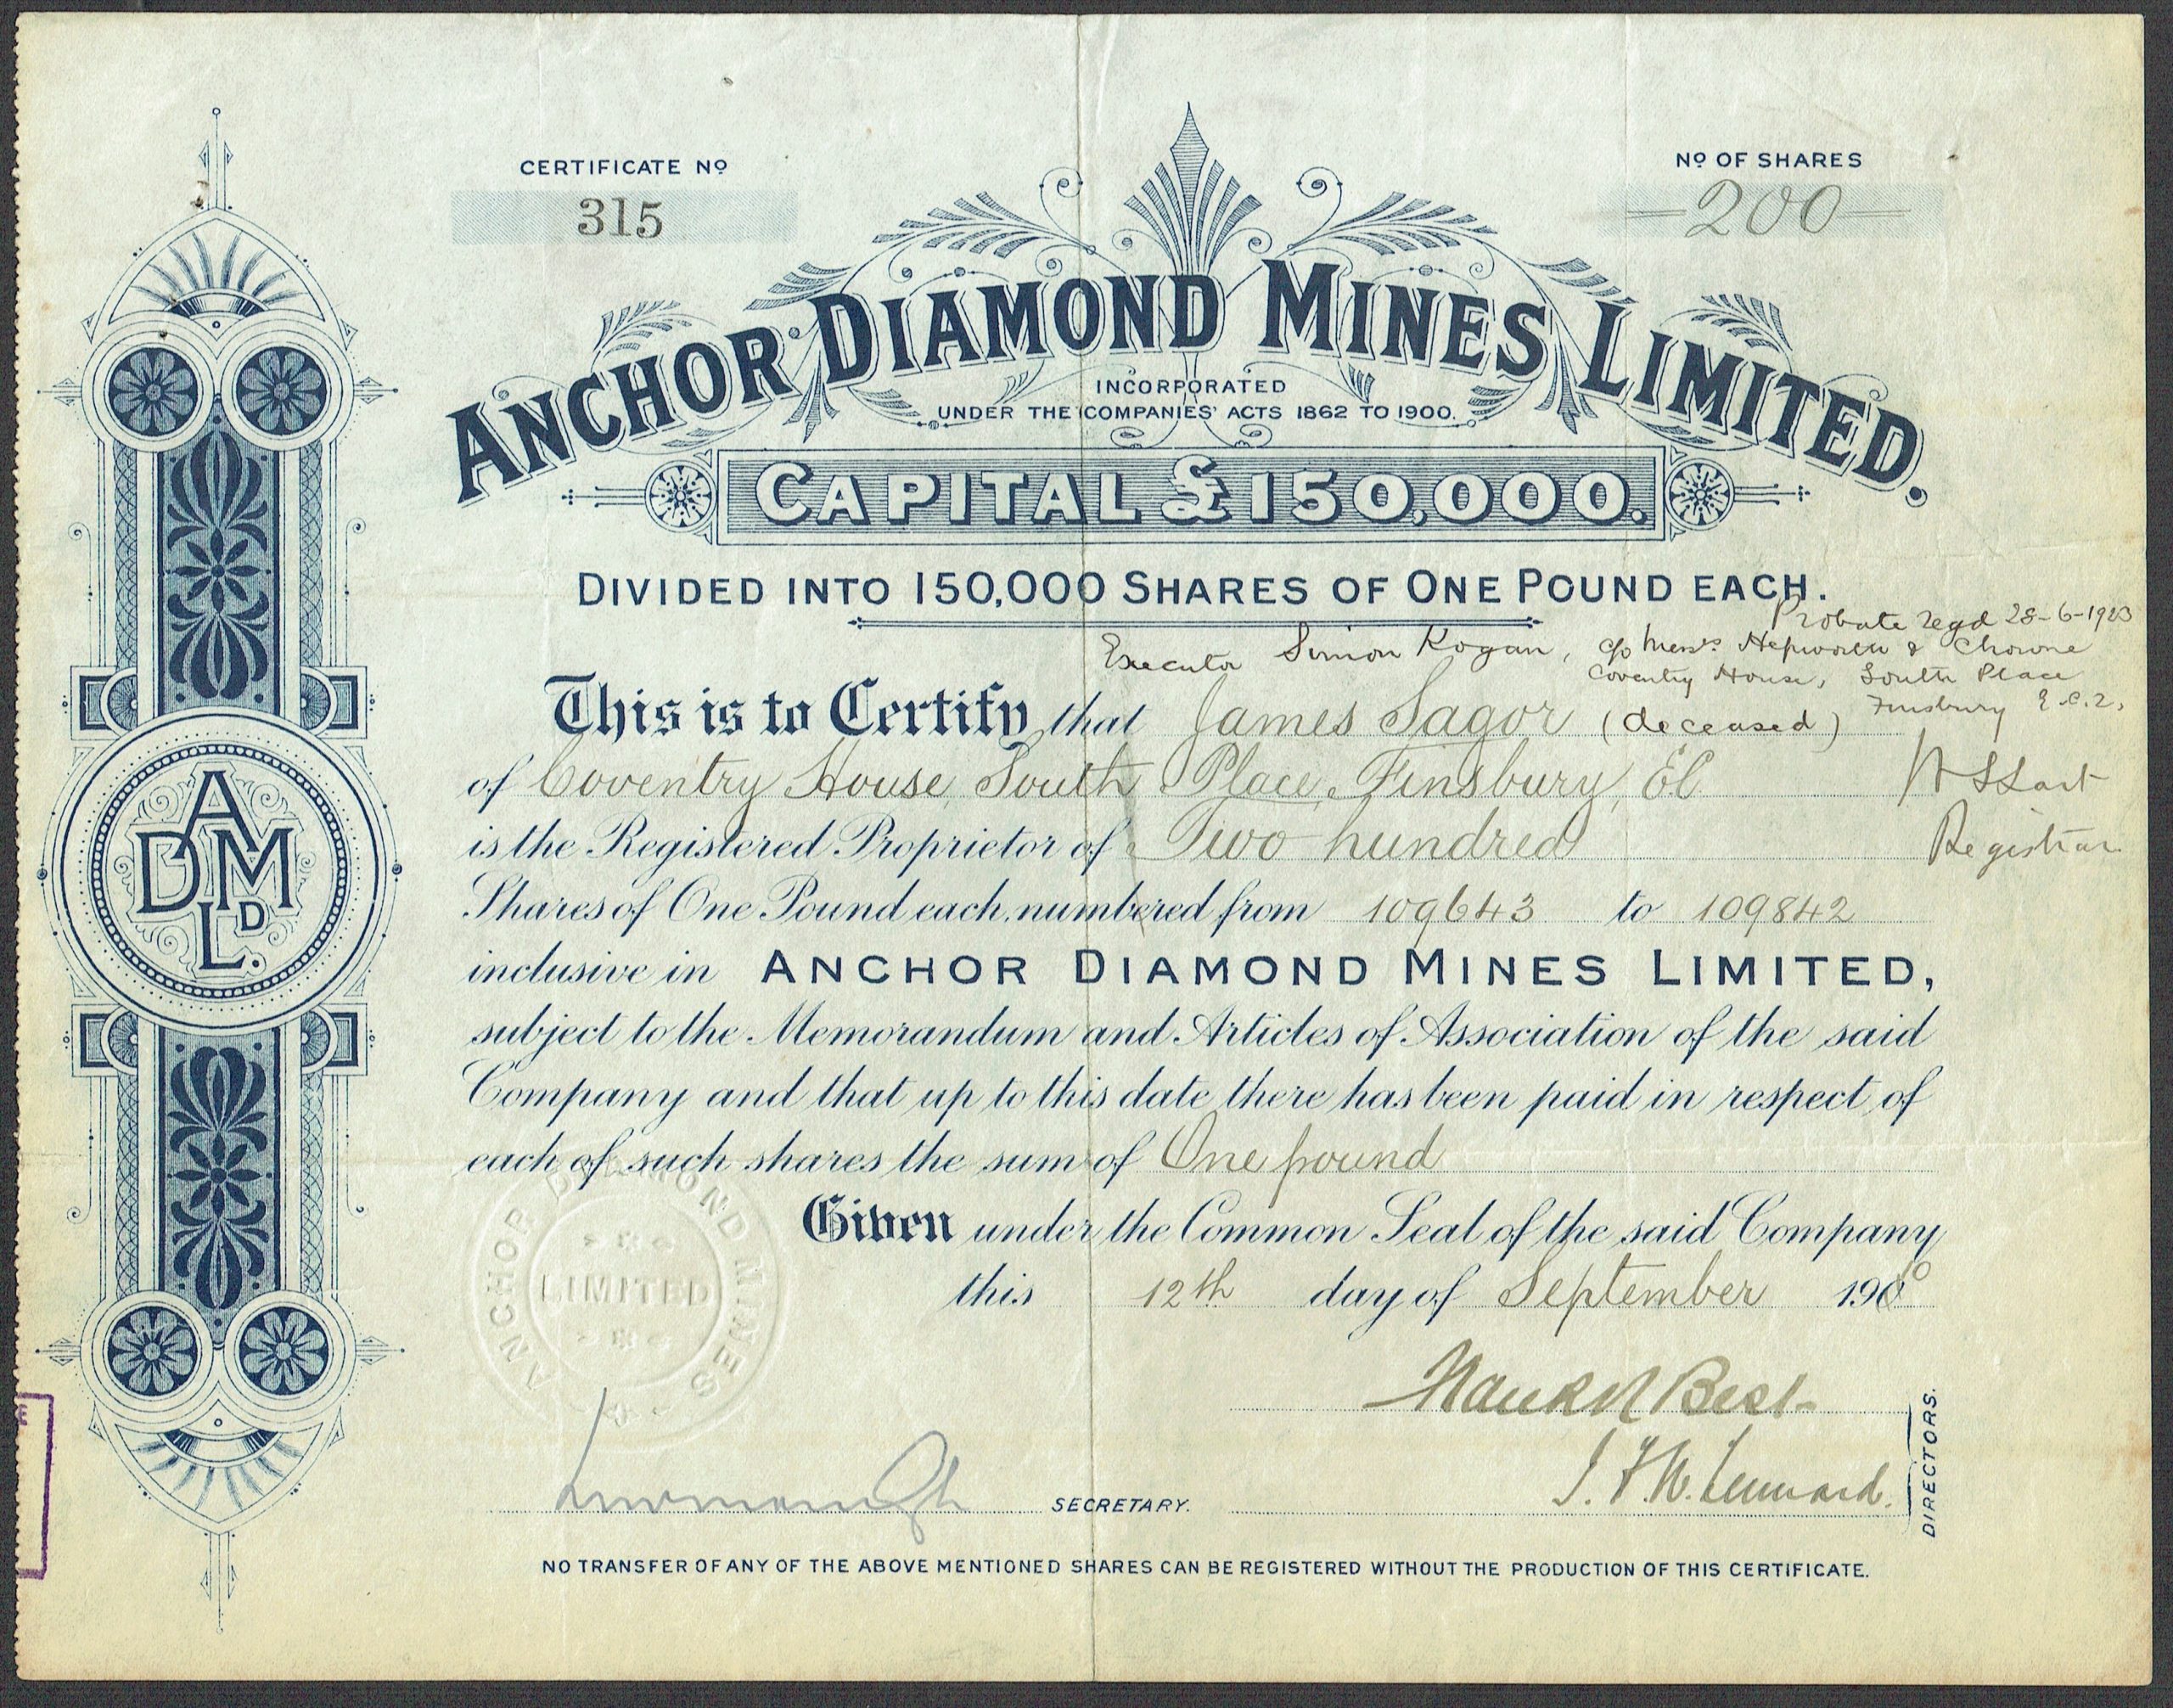 CERTIFICATE Nº
315
Nº OF SHARES
200
ANCHOR DIAMOND MINES LIMITED.
INCORPORATED
UNDER THE COMPANIES' ACTS 1862 TO 1900.
CAPITAL £150,000.
DIVIDED INTO 150,000 SHARES OF ONE POUND EACH.
Probate regd 28-6-1923
Executor Simon Kogan, c/o Messrs Hepworth & Chowne
Coventry House, South Place
Finsbury E.C.2,
This is to Certify that James Sagor (deceased)
of Coventry House, South Place, Finsbury, EC
Registrar
is the Registered Proprietor of Two hundred
Shares of One Pound each, numbered from 109643 to 109842
inclusive in ANCHOR DIAMOND MINES LIMITED,
subject to the Memorandum and Articles of Association of the said
Company and that up to this date there has been paid in respect of
each of such shares the sum of One pound
Given under the Common Seal of the said Company
this 12th day of September 190
ANCHOR DIAMOND MINES
LIMITED
Best
SECRETARY.
DIRECTORS.
NO TRANSFER OF ANY OF THE ABOVE MENTIONED SHARES CAN BE REGISTERED WITHOUT THE PRODUCTION OF THIS CERTIFICATE.
ADMLD.
E